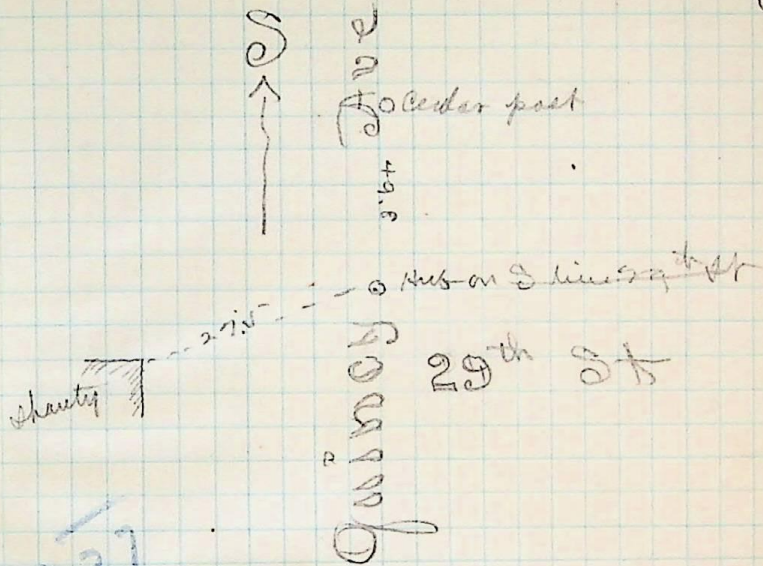 S
Ave
Cedar post
Hub on S line 29th St
27.5
29th St
shanty
27